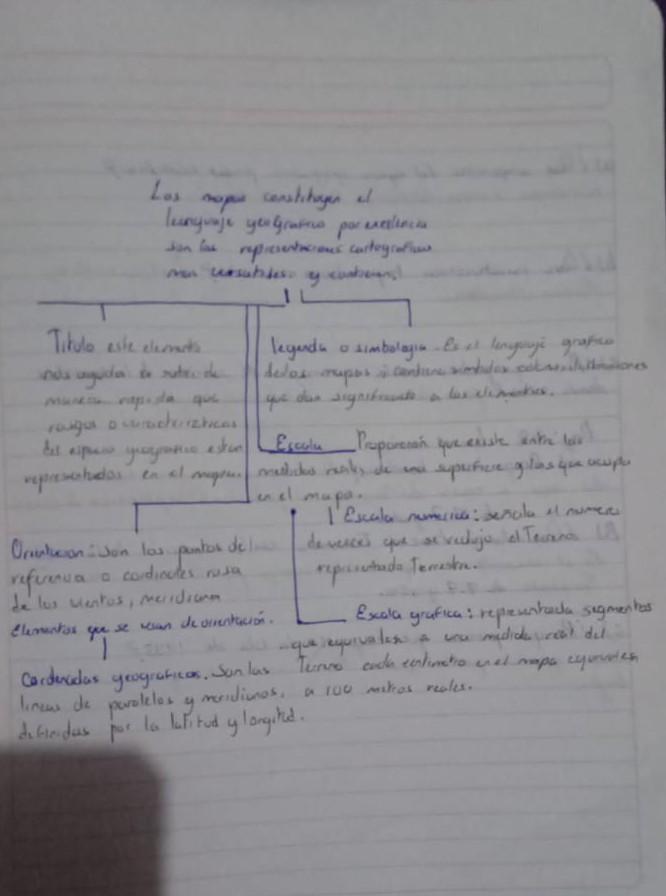 Los mapas constituyen el
lenguaje geografico por exelencia
son las representaciones cartograficas
mas consultadas. y contienen!
Titulo este elemento
nos ayuda a saber de
manera rapida que
rasgos o caracteristicas
del espacio geografico estan
representados en el mapa.
leyenda o simbologia. Es el lenguaje grafico
de los mapas, contiene simbolos colores, ilustraciones
que dan significado a los elementos.
Escala Proporción que existe entre las
medidas reales de una superficie y las que ocupa
en el mapa.
Escala numerica: señala el numero
de veces que se redujo el Terreno
representado Terrestre.
Escala grafica: representada segmentos
que equivales a una medida real del
Terreno cada centimetro en el mapa equivalen
a 100 metros reales.
Orientacion: son los puntos de
referencia o cardinales rosa
de los vientos, meridiana
elementos que se usan de orientación.
Cordenadas geograficas. Son las
lineas de paralelos y meridianos,
definidas por la latitud y longitud.